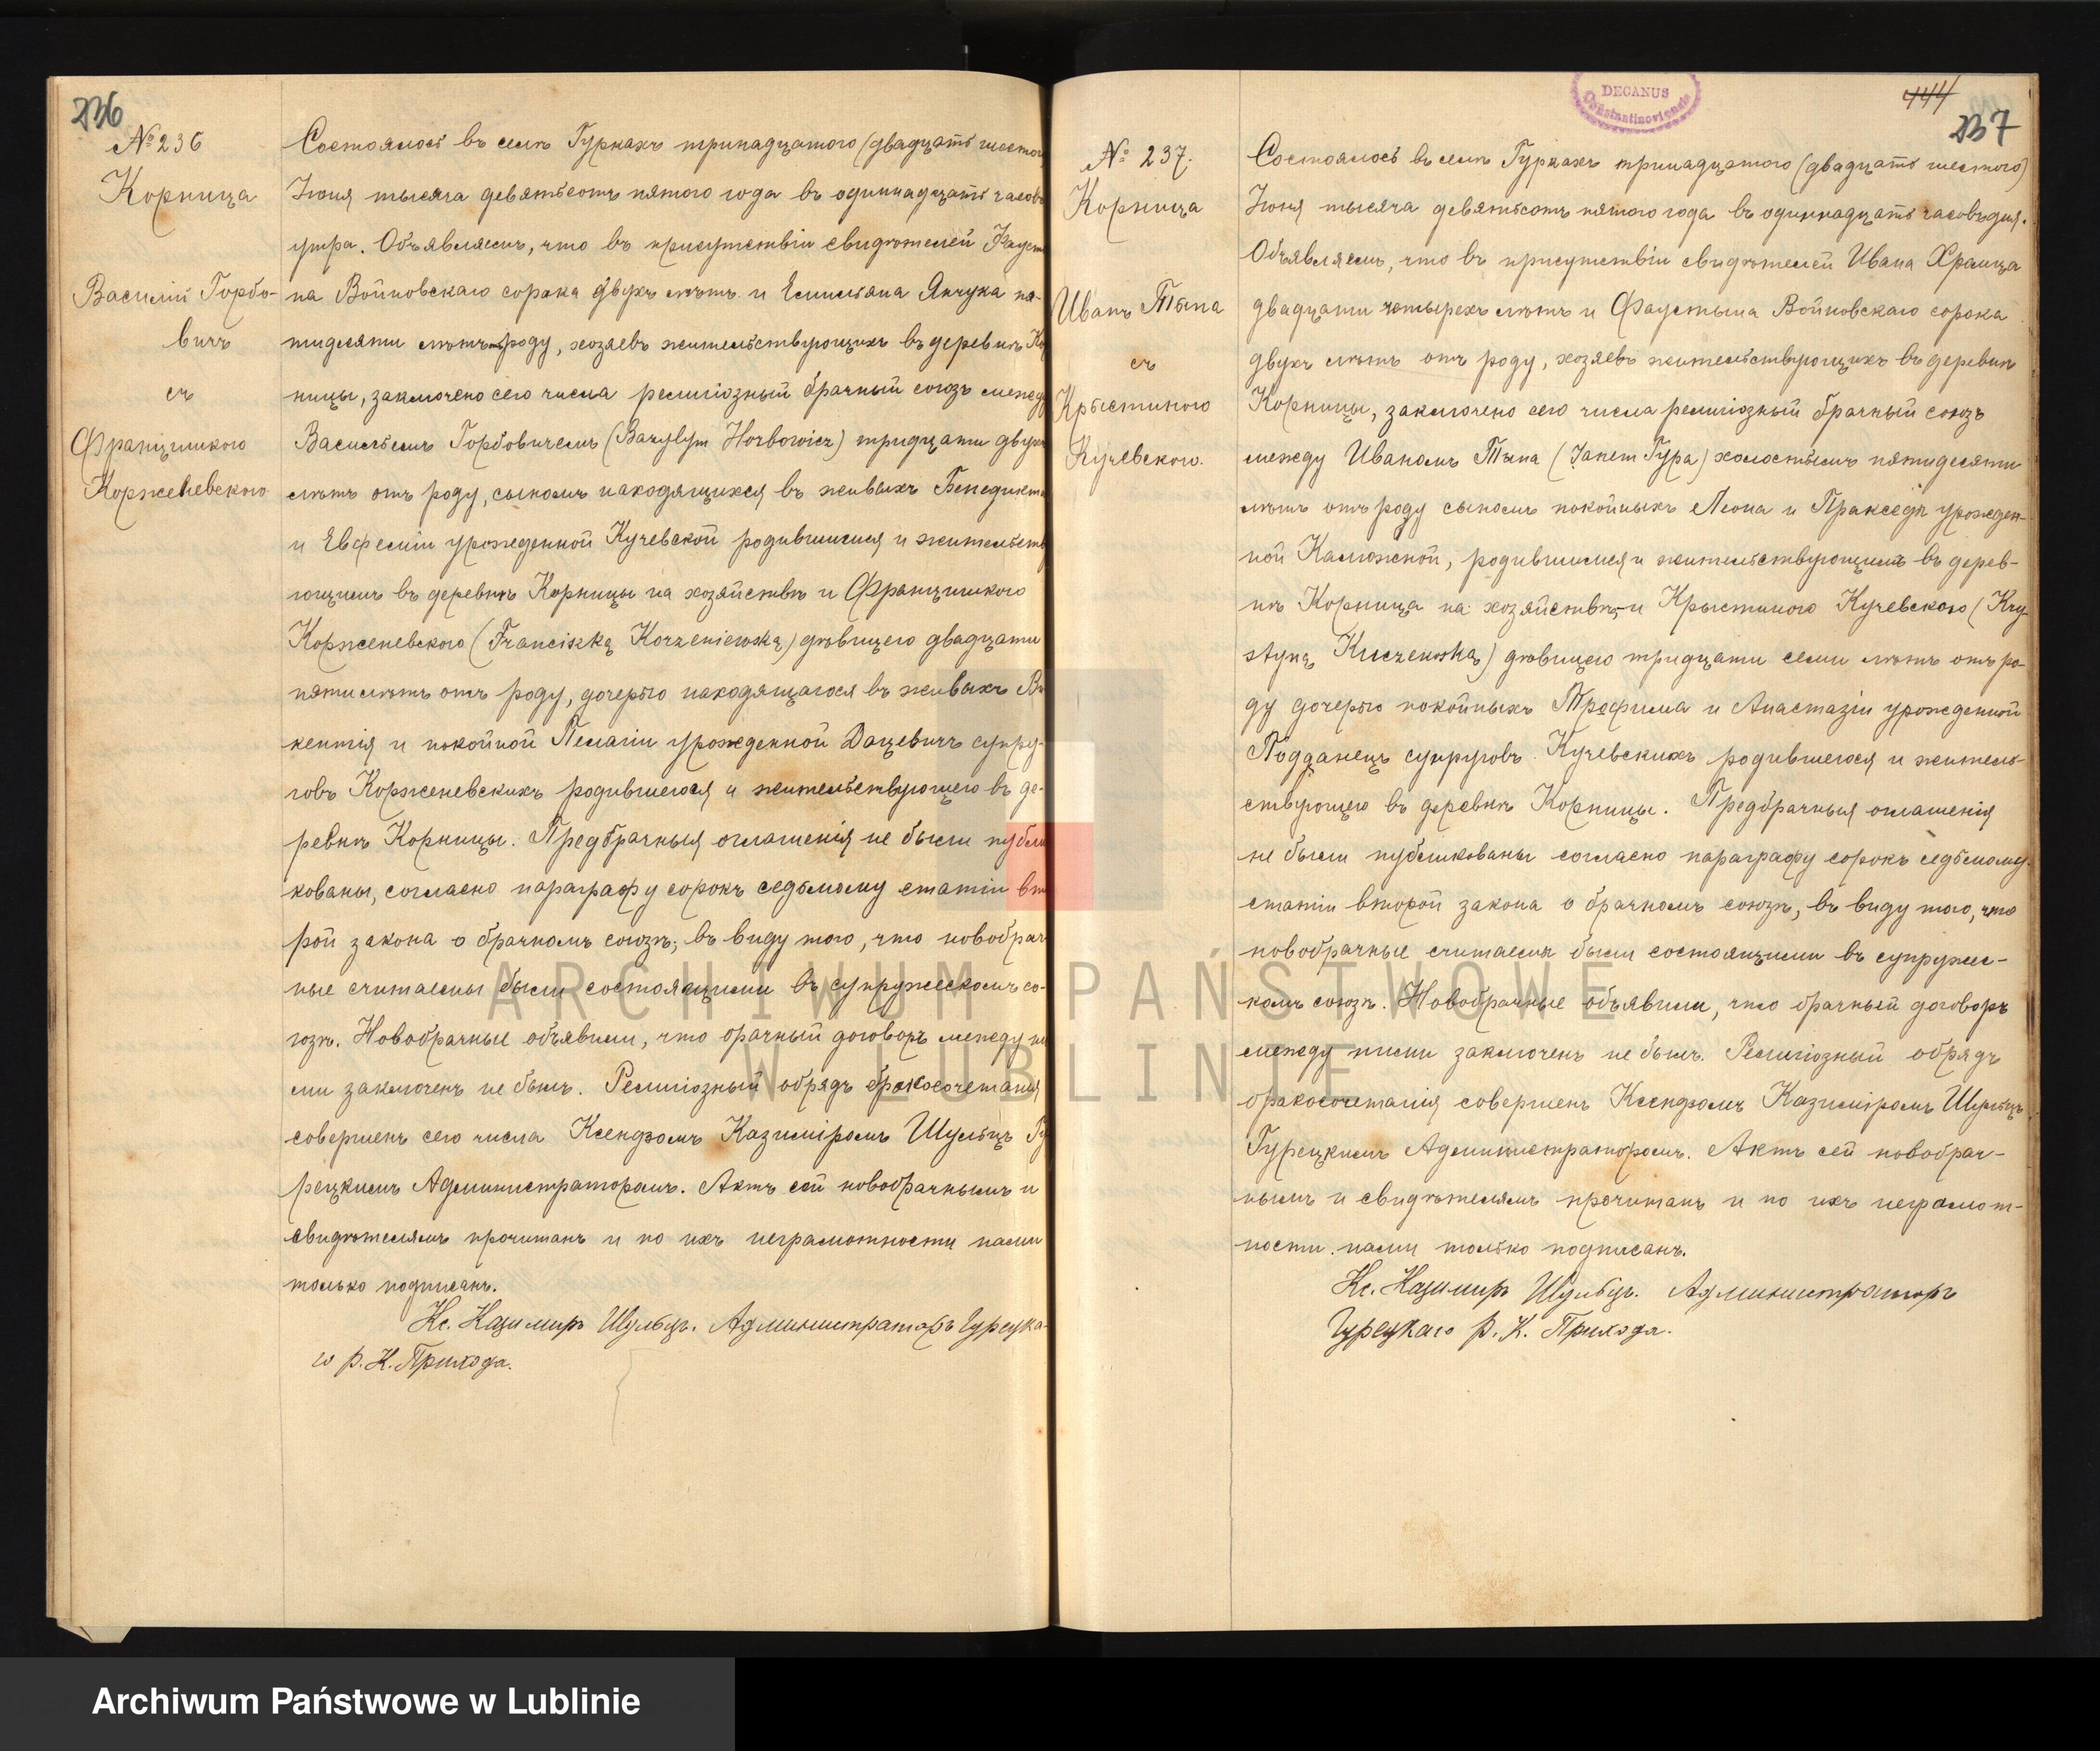 236
№ 236
Корница
Василій Горбо-
вичъ
съ
Францишкою
Корженевскою
Состоялось въ селѣ Гуркахъ тринадцатого (двадцать шестого
Іюня тысяча девятьсотъ пятого года въ одиннадцать часовъ
утра. Объявляемъ, что въ присутствіи свидѣтелей Фаусты-
на Войновскаго сорока двухъ лѣтъ и Емильяна Янчука пя-
тидесяти лѣтъ отъ роду, хозяевъ жительствующихъ въ деревнѣ Кор
ницы, заключено сего числа религіозный брачный союзъ между
Васильемъ Горбовичемъ (Bazylym Horbowicz) тридцати двухъ
лѣтъ отъ роду, сыномъ находящихся въ живыхъ Бенедикта
и Евфеміи урожденной Кучевской родившимся и жительству
ющимъ въ деревнѣ Корницы на хозяйствѣ и Францишкою
Корженевскою (Franciszką Korzeniewską) дѣвицею двадцати
пяти лѣтъ отъ роду, дочерью находящагося въ живыхъ Ви
кентія и покойной Пелагіи урожденной Дацевичъ супру-
говъ Корженевскихъ родившеюся и жительствующею въ де-
ревнѣ Корницы. Предбрачныя оглашенія не были публи
кованы, согласно параграфу сорокъ седьмому статіи вто
рой закона о брачномъ союзѣ, въ виду того, что новобрач
ные считаемы были состоящими въ супружескомъ со-
юзѣ. Новобрачные объявили, что брачный договоръ между ни
ми заключенъ не былъ. Религіозный обрядъ бракосочетанія
совершенъ сего числа Ксендзомъ Казиміромъ Шульцъ Гу
рецкимъ Администраторомъ. Актъ сей новобрачнымъ и
свидѣтелямъ прочитанъ и по ихъ неграмотности нами
только подписанъ.
Кс. Казимиръ Шульцъ. Администраторъ Гурецка-
го Р. К. Прихода.
DECANUS
Constantinoviensis
444
237
№ 237.
Корница
Иванъ Тыпа
съ
Крыстиною
Кучевскою.
Состоялось въ селѣ Гуркахъ тринадцатого (двадцать шестого)
Іюня тысяча девятьсотъ пятого года въ одиннадцать часовъ дня.
Объявляемъ, что въ присутствіи свидѣтелей Ивана Храща
двадцати четырехъ лѣтъ и Фаустына Войновскаго сорока
двухъ лѣтъ отъ роду, хозяевъ жительствующихъ въ деревнѣ
Корницы, заключено сего числа религіозный брачный союзъ
между Иваномъ Тыпа (Janem Typa) холостымъ пятидесяти
лѣтъ отъ роду сыномъ покойныхъ Леона и Пракседы урожден-
ной Калюжной, родившимся и жительствующимъ въ дерев-
нѣ Корница на хозяйствѣ, и Крыстиною Кучевскою (Kry-
styną Kuczewską) дѣвицею тридцати семи лѣтъ отъ ро-
ду дочерью покойныхъ Трофима и Анастазіи урожденной
Подданецъ супруговъ Кучевскихъ родившеюся и житель-
ствующею въ деревнѣ Корницы. Предбрачныя оглашенія
не были публикованы согласно параграфу сорокъ седьмому
статіи второй закона о брачномъ союзѣ, въ виду того, что
новобрачные считаемы были состоящими въ супружес-
комъ союзѣ. Новобрачные объявили, что брачный договоръ
между ними заключенъ не былъ. Религіозный обрядъ
бракосочетанія совершенъ Ксендзомъ Казиміромъ Шульцъ
Гурецкимъ Администраторомъ. Актъ сей новобрач-
нымъ и свидѣтелямъ прочитанъ и по ихъ неграмот-
ности нами только подписанъ.
Кс. Казимиръ Шульцъ. Администраторъ
Гурецкаго Р. К. Прихода.
ARCHIWUM PAŃSTWOWE
W LUBLINIE
Archiwum Państwowe w Lublinie